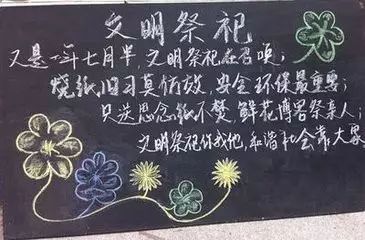 文明祭祀
又是一年七月半，文明祭祀在召唤；
烧纸旧习莫仿效，安全环保最重要；
只送思念纸不焚，鲜花博客祭亲人；
文明祭祀你我他，和谐社会靠大家